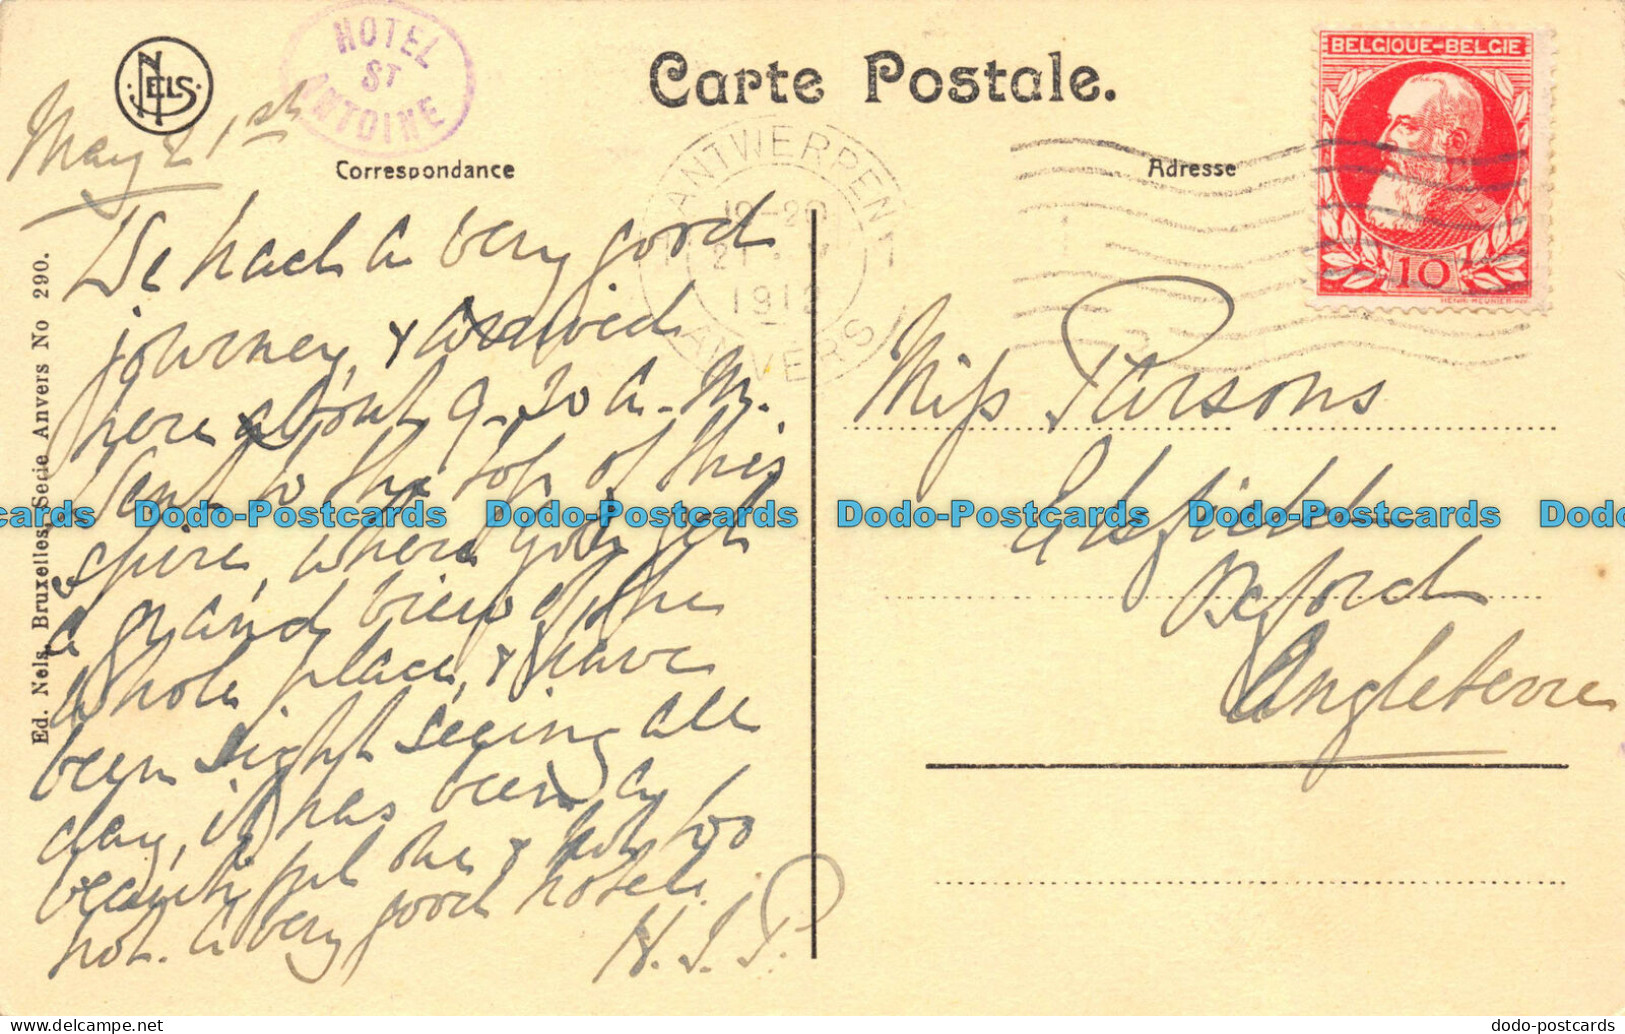 NELS
HOTEL
ST
ANTOINE
Carte Postale.
BELGIQUE-BELGIE
10
HENRI MEUNIER
May 21st
Correspondance
Adresse
1 ANTWERPEN 1
19-20
21 · V
1912
ANVERS
We had a very good
journey, & arrived
here about 9-30 a.m.
Went to the top of this
spire, where you get
a grand view of the
whole place, & have
been sight seeing all
day, it has been a
beautiful one & not too
hot. A very good hotel.
H. J. P.
Miss Parsons
Oxford
Angleterre
Ed. Nels, Bruxelles, Serie Anvers No 290.
Dodo-Postcards Dodo-Postcards Dodo-Postcards Dodo-Postcards Dodo-Postcards
dodo-postcards.com